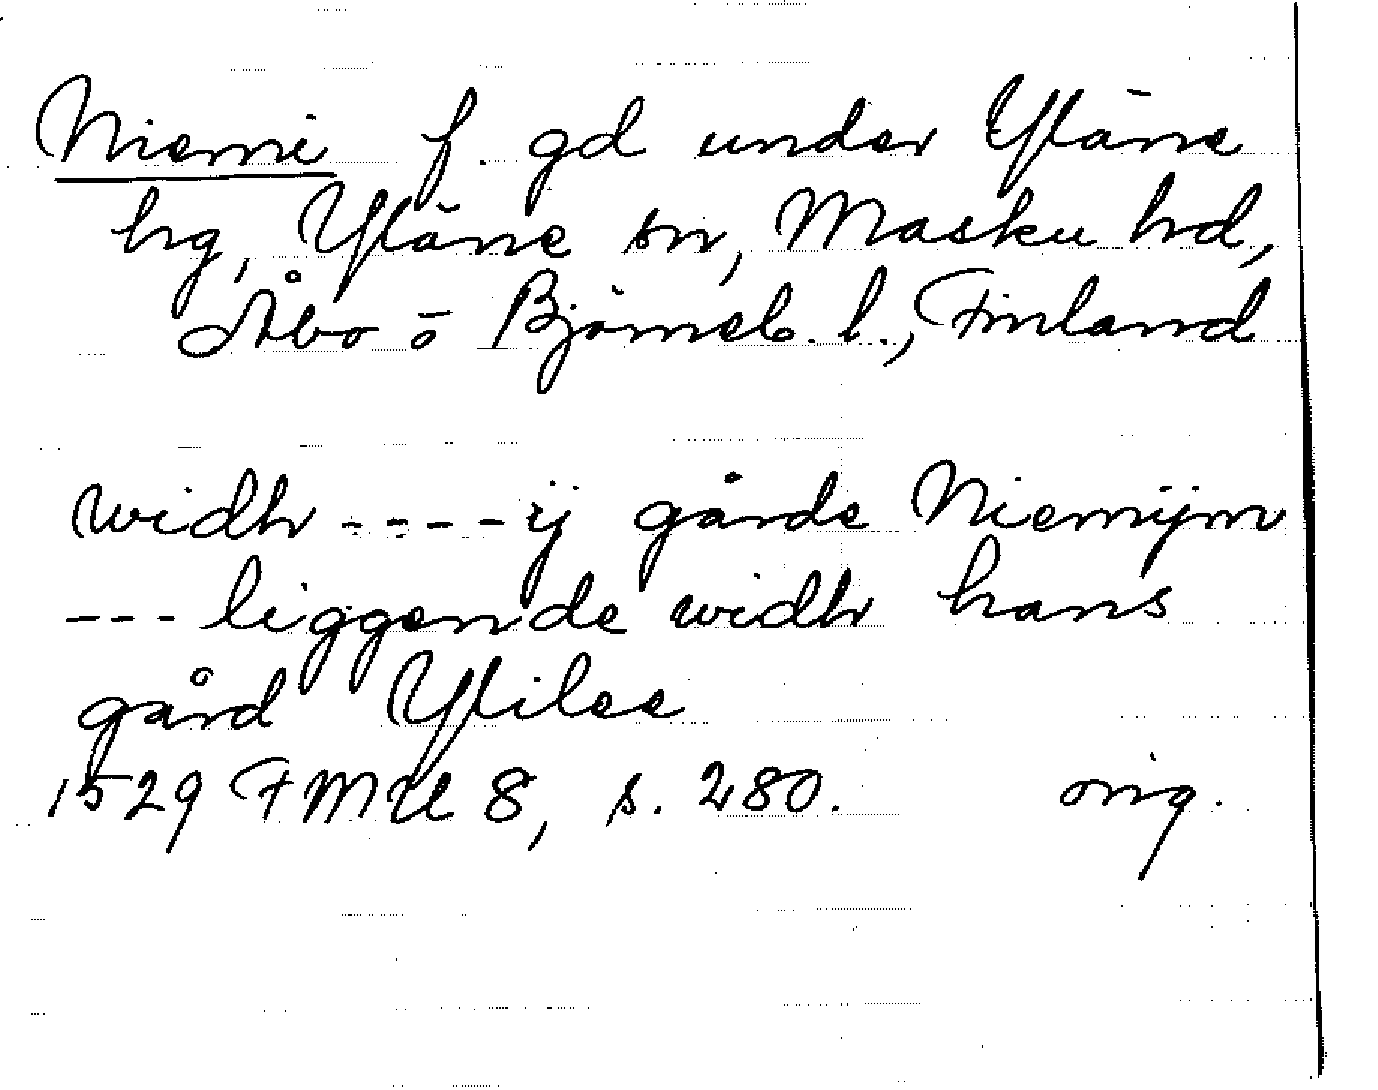 Niemi f. gd under Yläne
hg, Yläne sn, Masku hd,
Åbo o Björneb. l., Finland
widh ---- ij gårde Niemijm
--- liggende widh hans
gård Ylilee
1529 FMU 8, s. 280. orig.